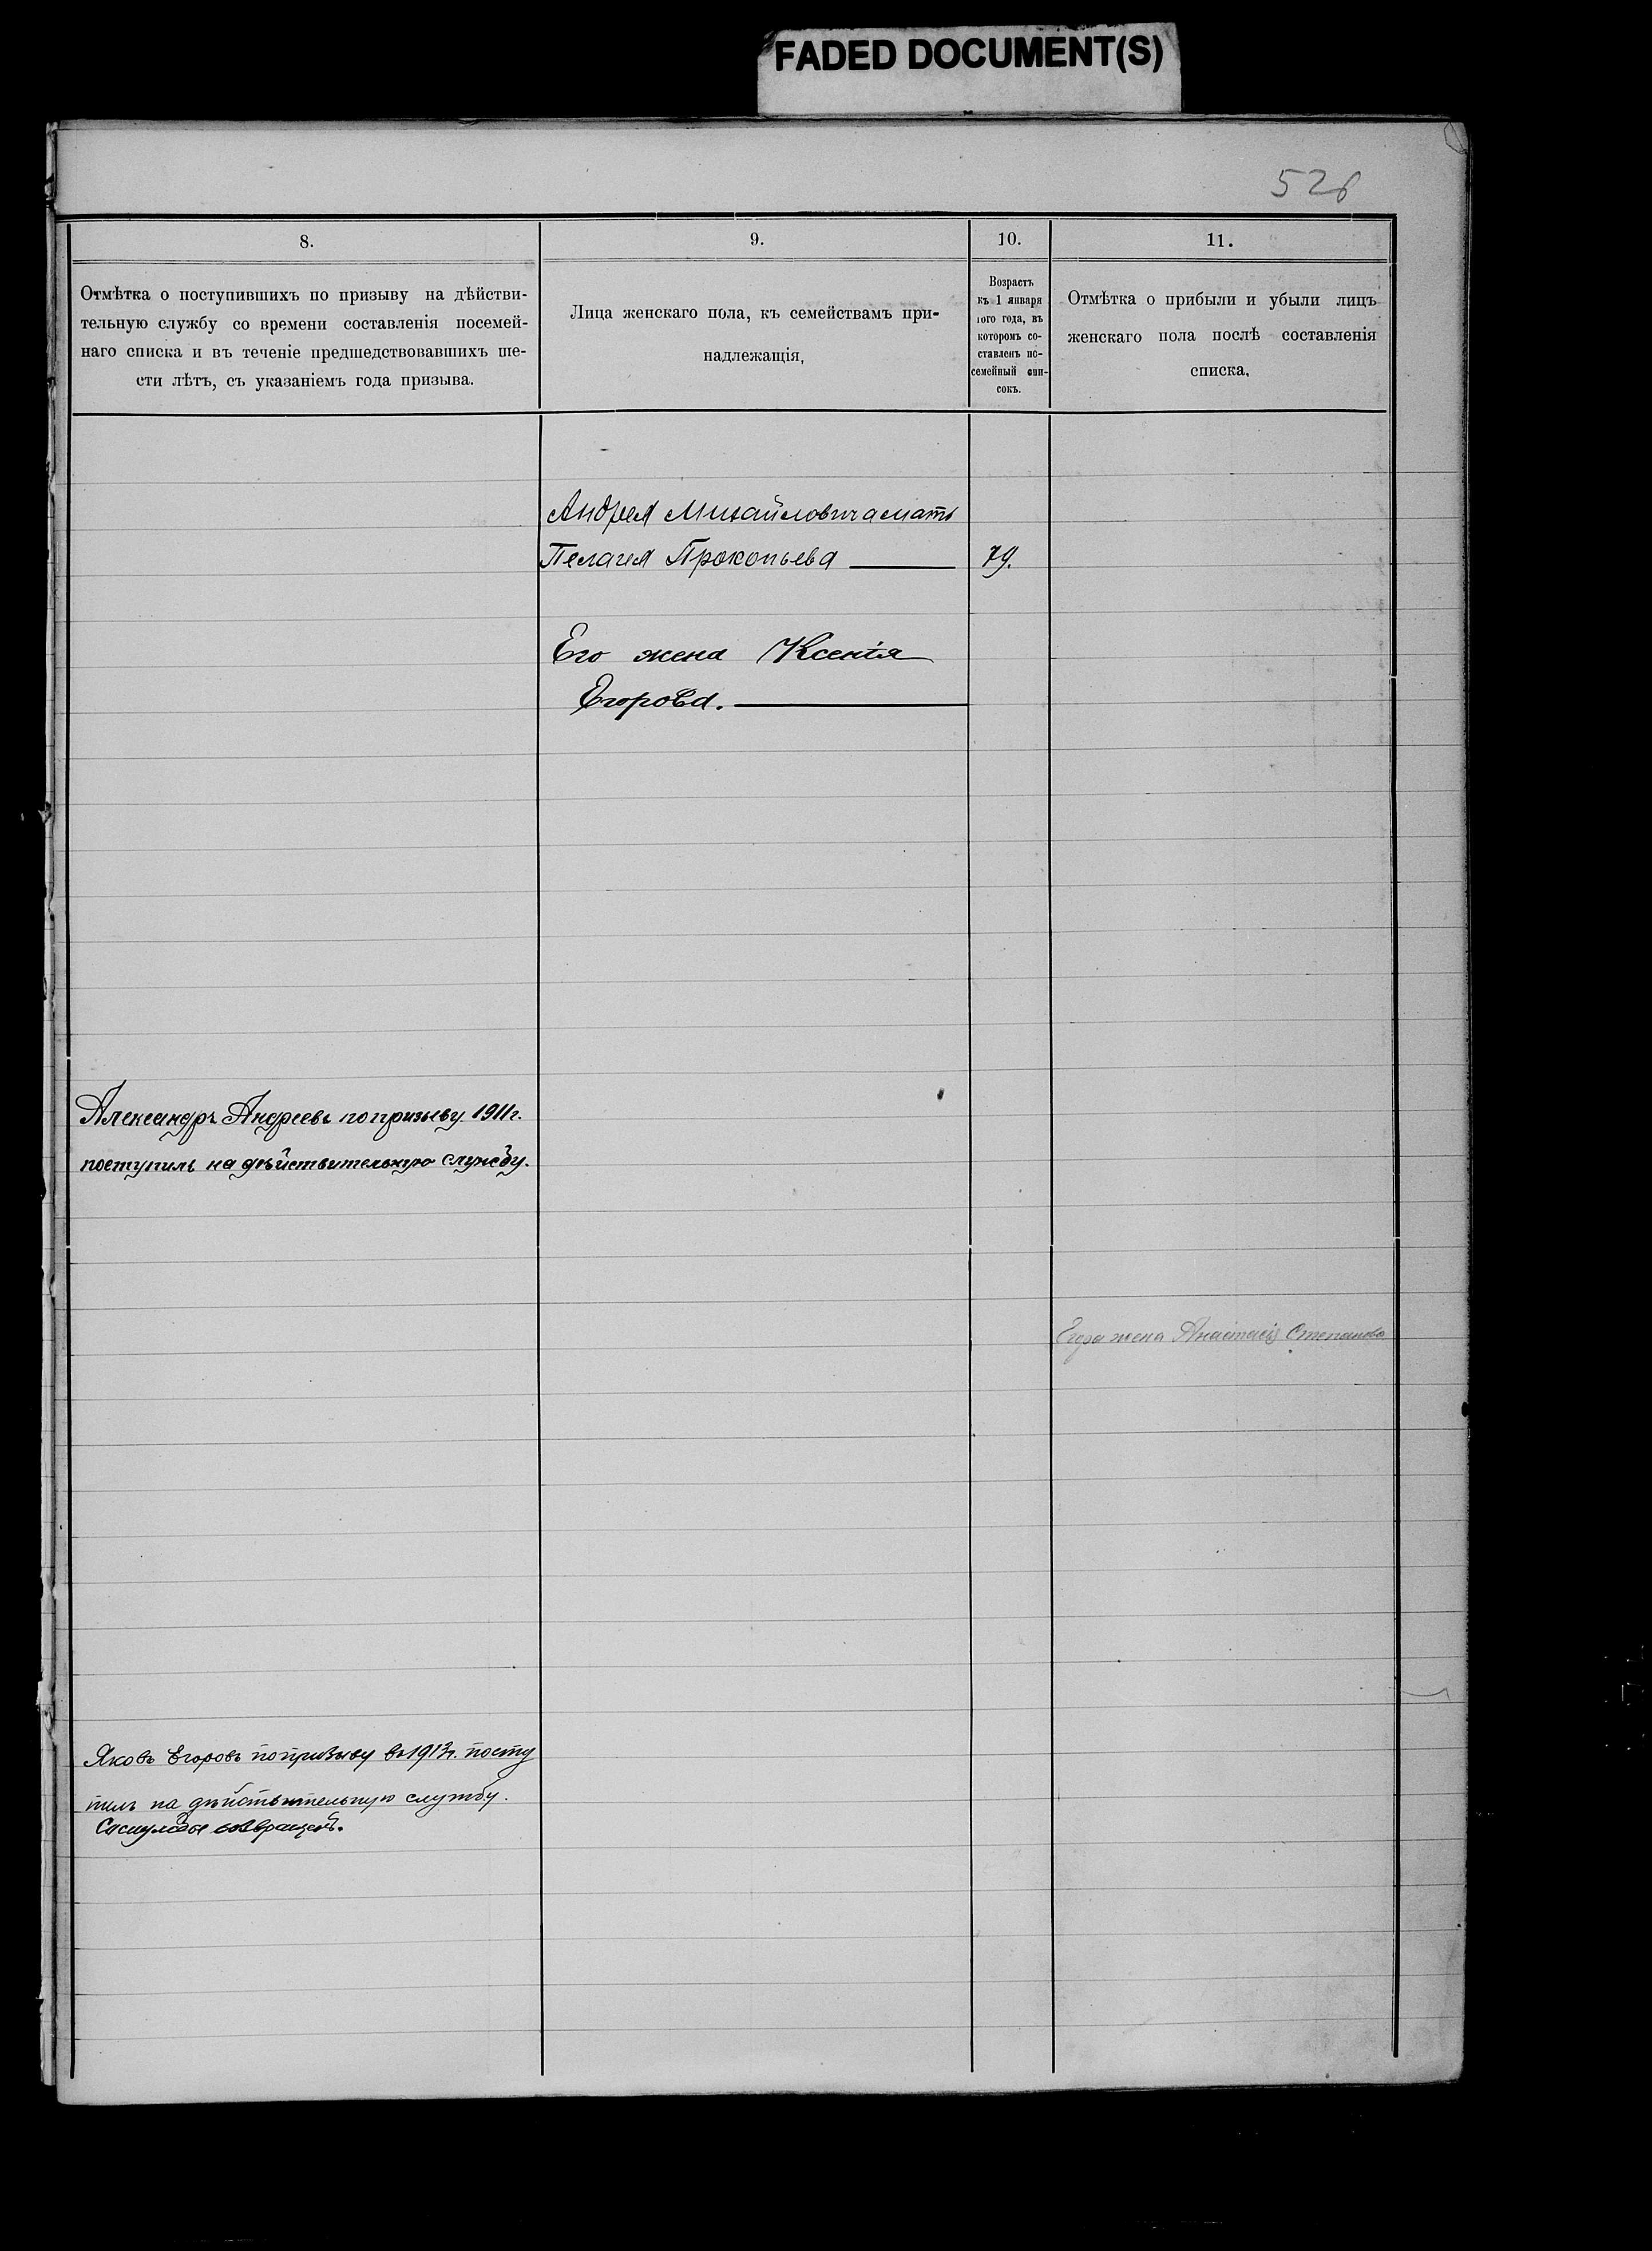 FADED DOCUMENT(S)
526
8.
Отмѣтка о поступившихъ по призыву на дѣйстви-
тельную службу со времени составленія посемей-
наго списка и въ теченіе предшедствовавшихъ ше-
сти лѣтъ, съ указаніемъ года призыва.
9.
Лица женскаго пола, къ семействамъ при-
надлежащія,
10.
Возрастъ
къ 1 января
того года, въ
которомъ со-
ставленъ по-
семейный спи-
сокъ.
11.
Отмѣтка о прибыли и убыли лицъ
женскаго пола послѣ составленія
списка,
Андрея Михайловича мать
Пелагея Прокопьева
79.
Его жена Ксенія
Егорова.
Александръ Андреевъ по призыву 1911 г.
поступилъ на дѣйствительную службу.
Егора жена Анастасія Степанова
Яковъ Егоровъ по призыву въ 1913 г. посту
пилъ на дѣйствительную службу.
возвращенъ.